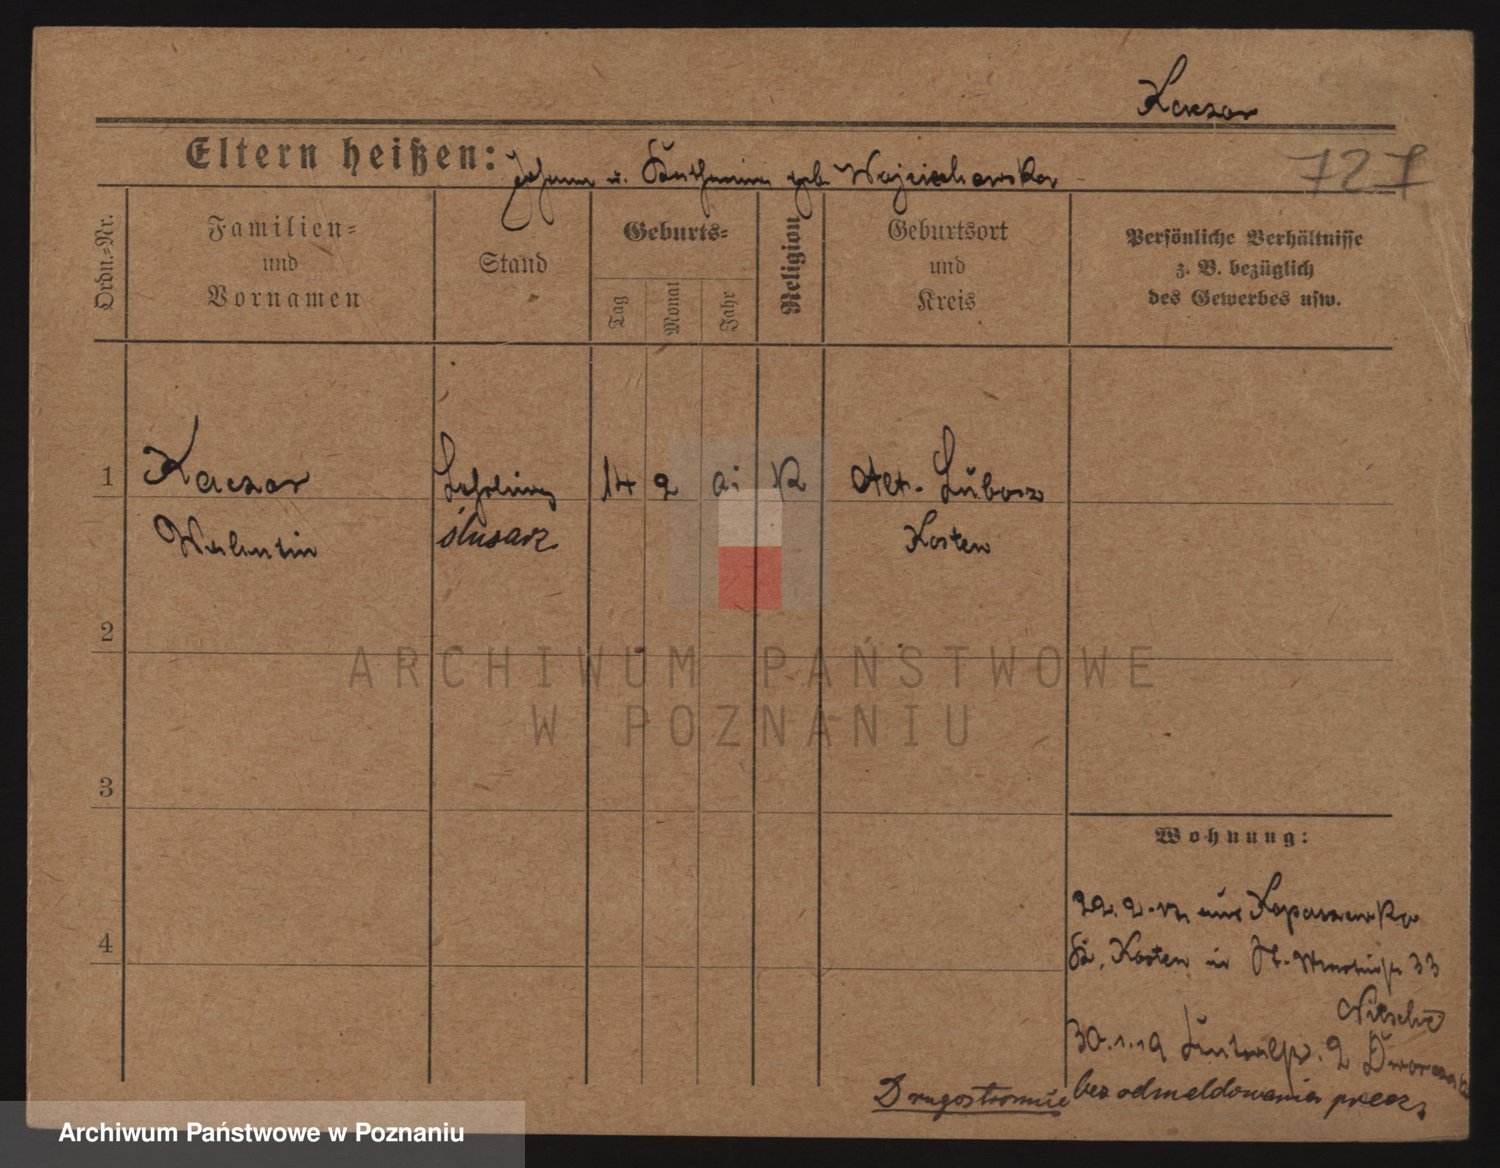 Kaczor
Eltern heißen: Johann u. Katharina geb. Wojciechowska
727
Ordn.-Nr.
Familien-
und
Vornamen
Stand
Geburts-
Tag
Monat
Jahr
Religion
Geburtsort
und
Kreis
Persönliche Verhältnisse
z. B. bezüglich
des Gewerbes usw.
1
Kaczor
Lehrling
14 2
K
Alt- Lubosz
Valentin
ślusarz
Kosten
2
3
4
Wohnung:
22. 2. aus Kopaszewko
Kr. Kosten in St. Martinstr 33
Nitsche
30.1.19 2
Drugostronnie bez odmeldowania precz
ARCHIWUM PAŃSTWOWE
W POZNANIU
Archiwum Państwowe w Poznaniu